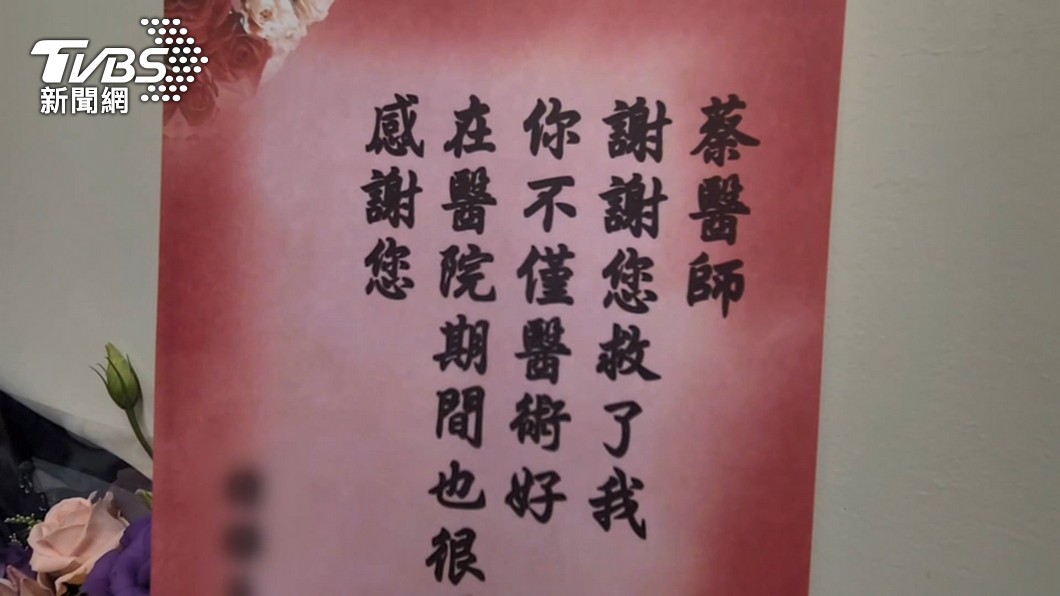 TVBS
新聞網
蔡醫師
謝謝您救了我
你不僅醫術好
在醫院期間也很
感謝您